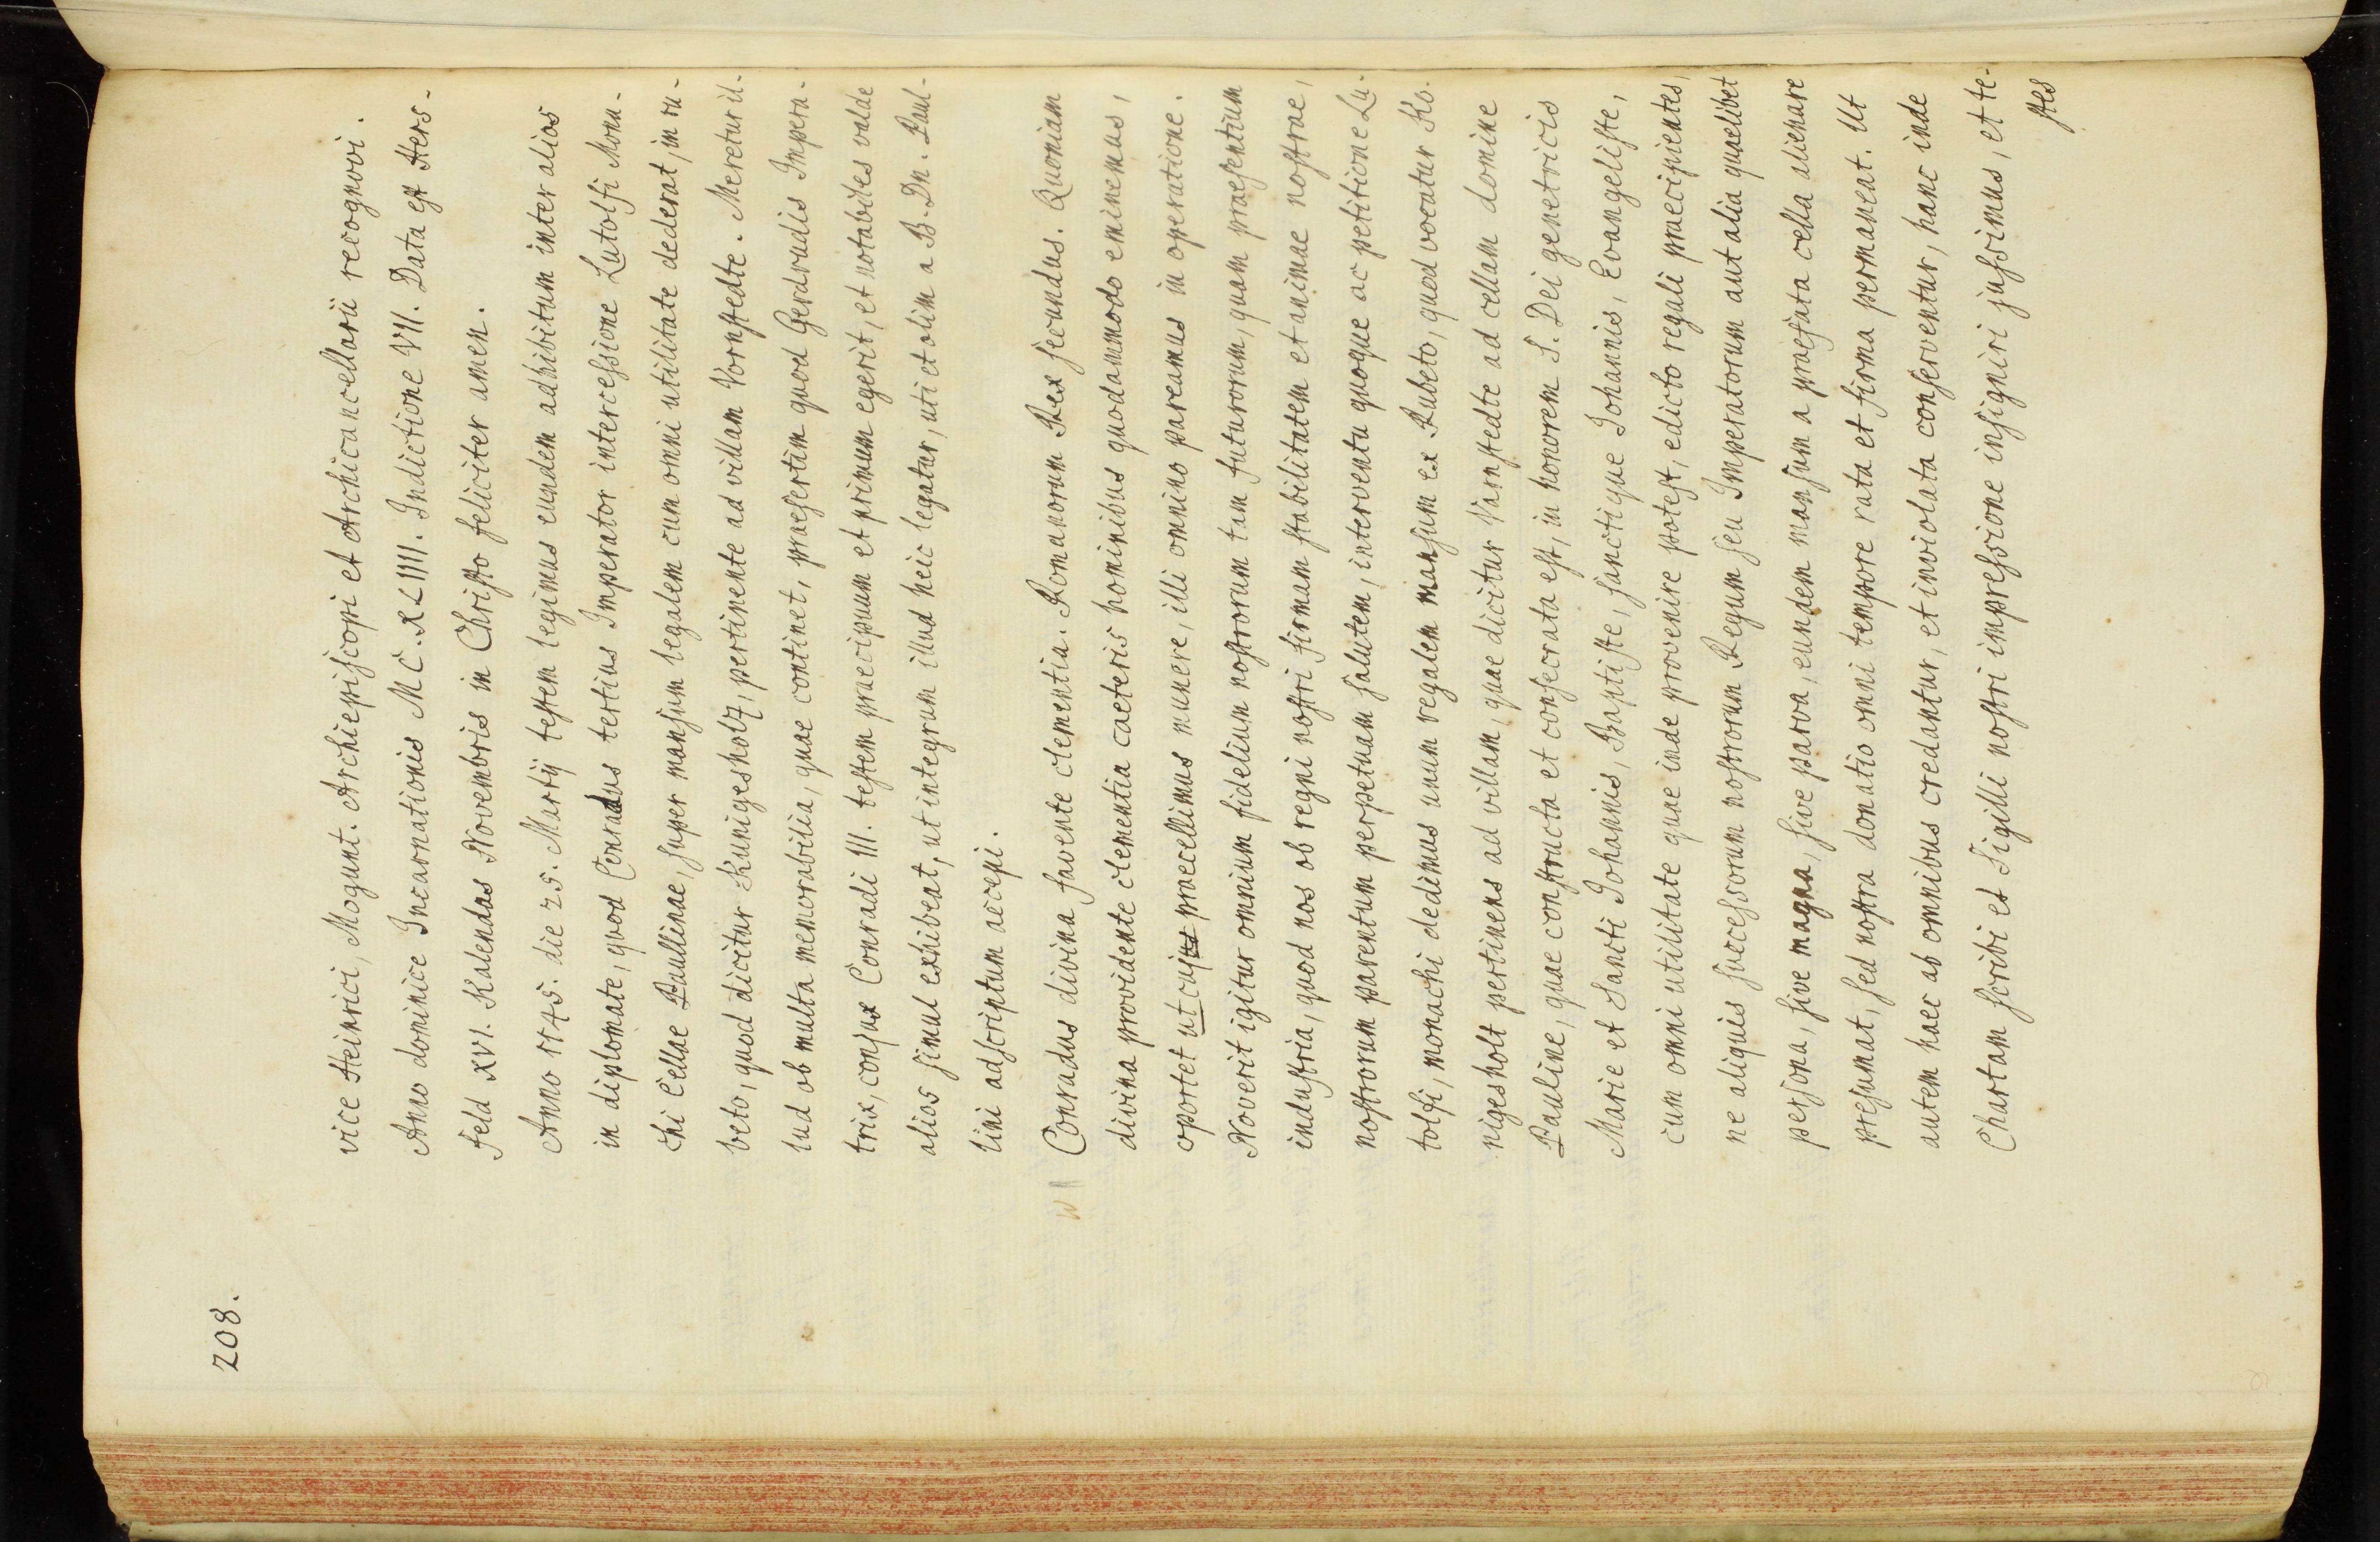 208.
vice Heinrici, Mogunt. Archiepiscopi et Archicancellarii recognovi.
Anno dominice Incarnationis MC.XLIIII. Indictione VII. Data est Hers-
feld XVI. Kalendas Novembris in Christo feliciter amen.
Anno 1145. die 25. Martij testem legimus eundem adhibitum inter alios
in diplomate, quod Conradus tertius Imperator intercessione Lutolfi Mona-
chi Cellae Paullinae, super mansum legalem cum omni utilitate dederat, in ru-
beto, quod dicitur Kunigesholz, pertinente ad villam Vornstedte. Meretur il-
lud ob multa memorabilia, quae continet, praesertim quod Gerdrudis Impera-
trix, conjux Conradi III. testem praecipuum et primum egerit, et notabiles valde
alios simul exhibeat, ut integrum illud heic legatur, uti et olim a B. Dn. Paul-
lini adscriptum accepi.
Conradus divina favente clementia. Romanorum Rex secundus. Quoniam
divina providente clementia caeteris hominibus quodammodo eminemus,
oportet ut cujus praecellimus munere, illi omnino pareamus in operatione.
Noverit igitur omnium fidelium nostrorum tam futurorum, quam praesentium
industria, quod nos ob regni nostri firmam stabilitatem et animae nostrae,
nostrorum parentum perpetuam salutem, interventu quoque ac petitione Lu-
tolfi, monachi dedimus unum regalem mansum ex Rubeto, quod vocatur Ko-
nigesholt pertinens ad villam, quae dicitur Varnstedte ad cellam domine
Pauline, quae constructa et consecrata est, in honorem S. Dei genetricis
Marie et Sancti Johannis, Baptiste, sanctique Johannis, Evangeliste,
cum omni utilitate quae inde provenire potest, edicto regali praecipientes,
ne aliquis successorum nostrorum Regum seu Imperatorum aut alia quaelibet
persona, sive magna, sive parva, eundem mansum a praefata cella alienare
presumat, sed nostra donatio omni tempore rata et firma permaneat. Ut
autem haec ab omnibus credantur, et inviolata conserventur, hanc inde
Chartam scribi et Sigilli nostri impressione insigniri jussimus, et te-
stes